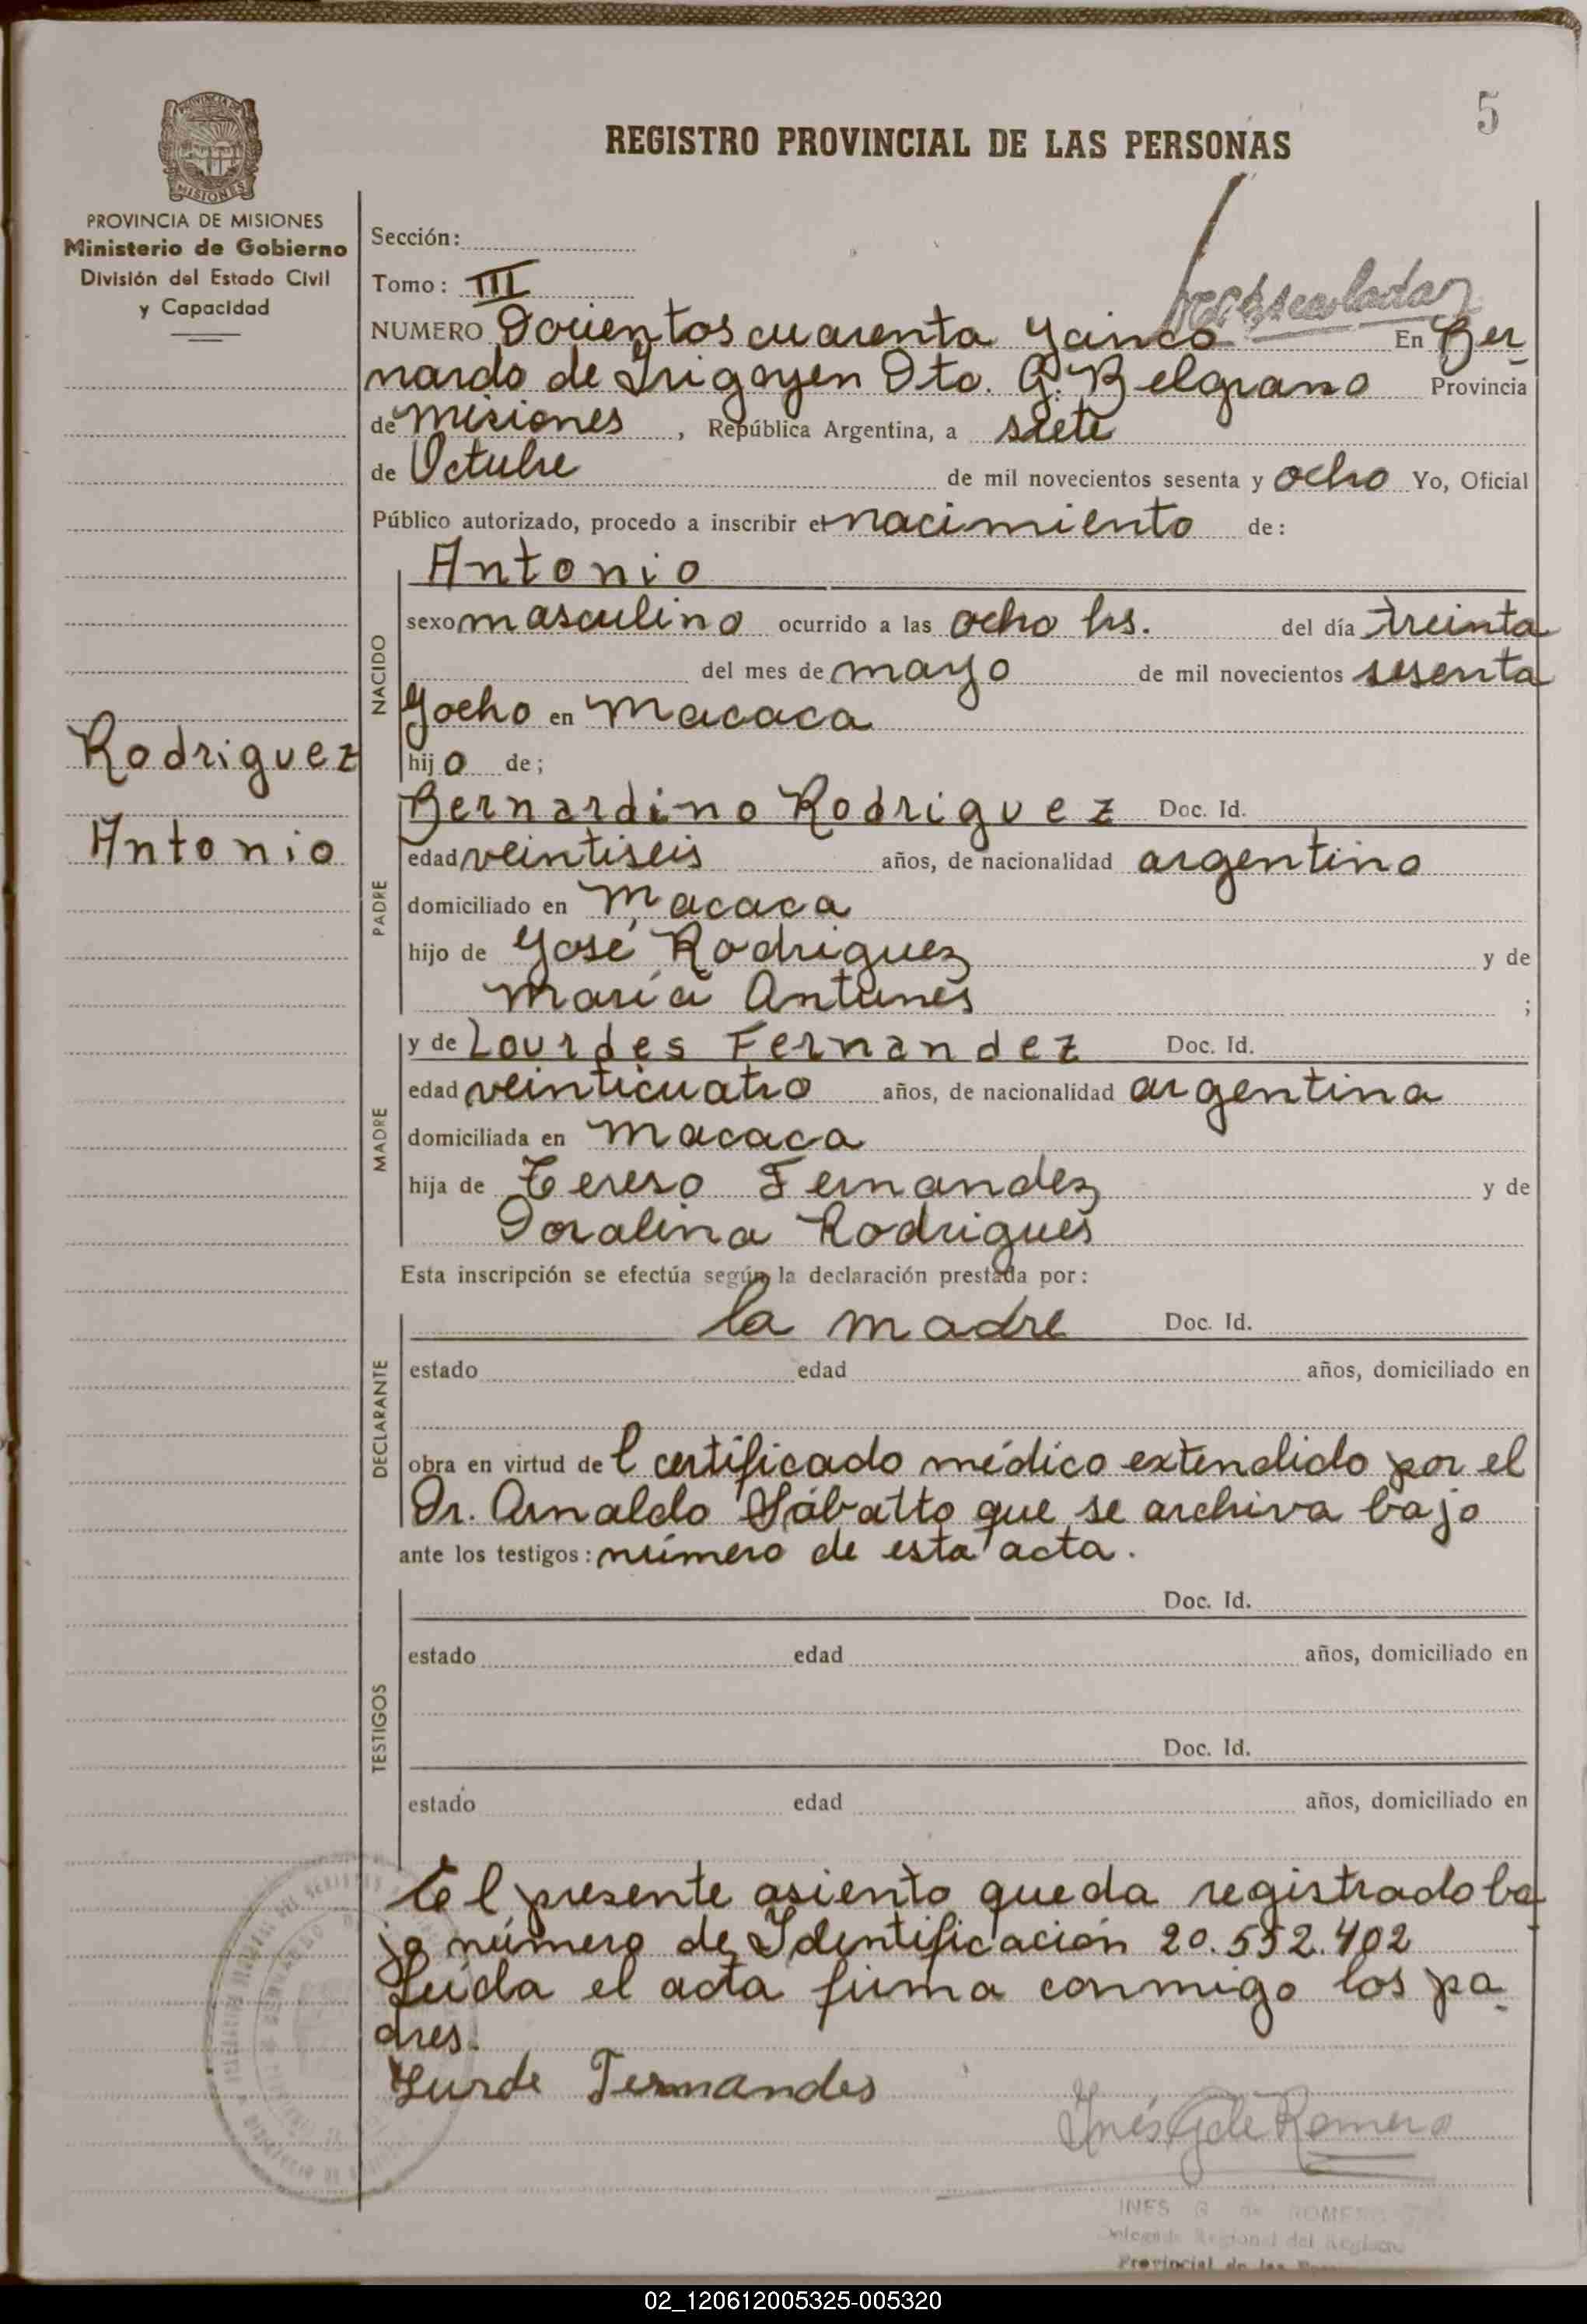 5
REGISTRO PROVINCIAL DE LAS PERSONAS
PROVINCIA DE MISIONES
MISIONES
PROVINCIA DE MISIONES
Ministerio de Gobierno
División del Estado Civil
y Capacidad
Sección:
Tomo: III
NUMERO Docientos cuarenta y cinco En Ber-
nardo de Irigoyen Dto. G. Belgrano Provincia
de Misiones, República Argentina, a siete
de Octubre de mil novecientos sesenta y ocho Yo, Oficial
Público autorizado, procedo a inscribir el nacimiento de:
Antonio
NACIDO
sexo masculino ocurrido a las ocho hs. del día treinta
del mes de mayo de mil novecientos sesenta
y ocho en Macaca
hijo de;
Rodriguez
Antonio
PADRE
Bernardino Rodriguez Doc. Id.
edad veintiseis años, de nacionalidad argentino
domiciliado en Macaca
hijo de José Rodriguez y de
María Antunes ;
MADRE
y de Lourdes Fernandez Doc. Id.
edad veinticuatro años, de nacionalidad argentina
domiciliada en Macaca
hija de Tereso Fernandez y de
Doralina Rodrigues
Esta inscripción se efectúa según la declaración prestada por:
DECLARANTE
la madre Doc. Id.
estado edad años, domiciliado en
obra en virtud del certificado médico extendido por el
Dr. Arnaldo Sábatto que se archiva bajo
ante los testigos: número de esta acta.
TESTIGOS
Doc. Id.
estado edad años, domiciliado en
Doc. Id.
estado edad años, domiciliado en
El presente asiento queda registrado ba
jo número de Identificación 20.552.402
Leída el acta firma conmigo los pa-
dres.
Lurde Fernandes
Inés G de Romero
INES G de ROMERO
Delegada Regional del Registro
Provincial de las
02_120612005325-005320